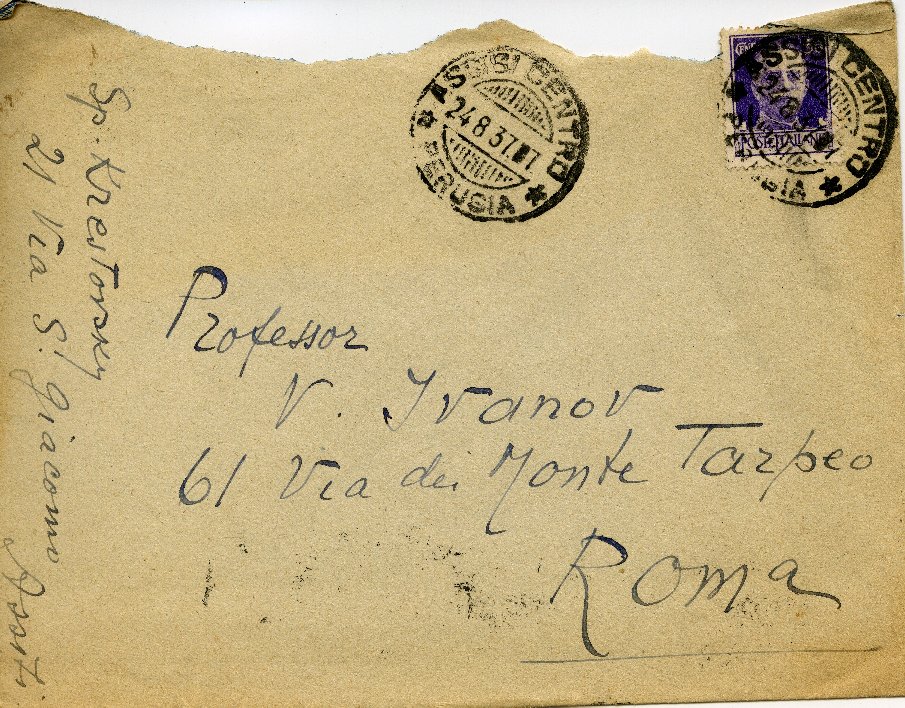 ASSISI CENTRO
24 8 37
PERUSIA
ASSISI CENTRO
POSTE ITALIANE
Professor
V. Ivanov
61 Via dei Monte Tarpeo
ROMA
Sp. Krestovsky
21 Via S. Giacomo
Assisi